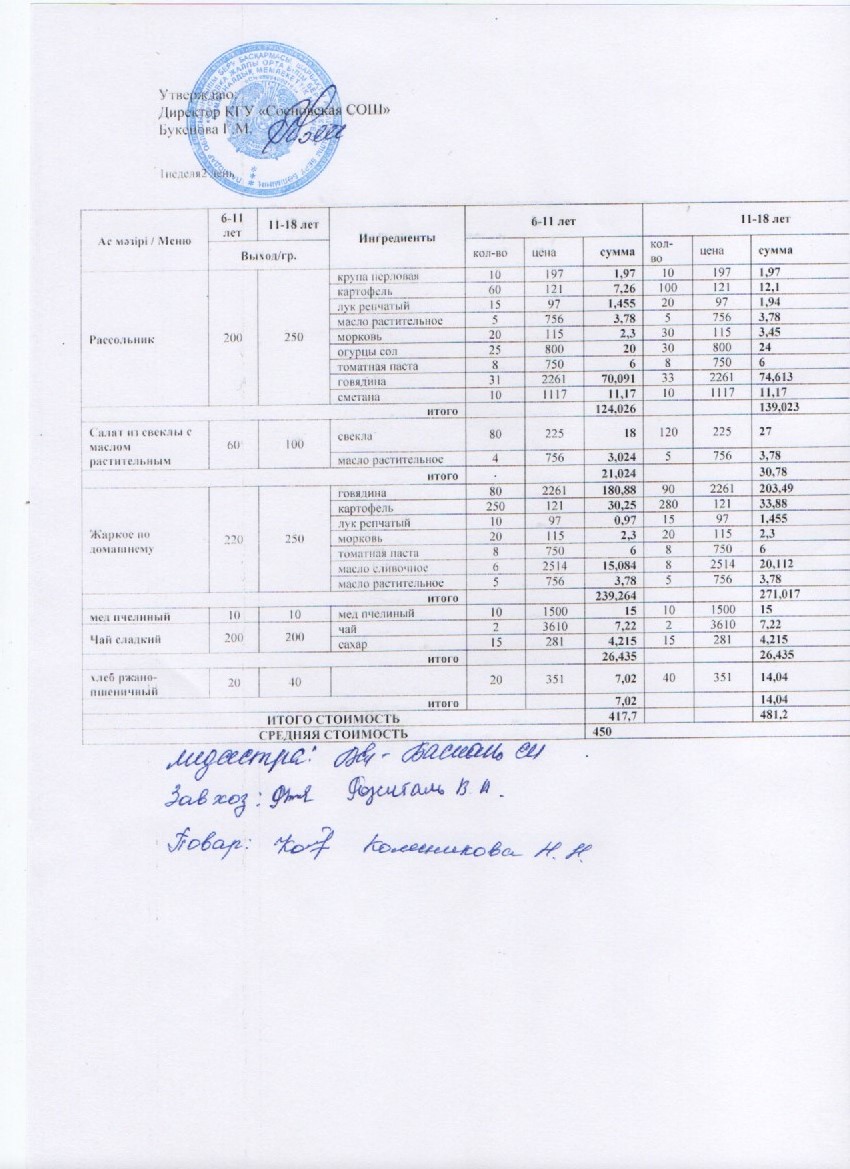 Утверждаю:
Директор КГУ «Сосновская СОШ»
Букенова Г.М.
1неделя2 день
Ас мәзірі / Меню 6-11 лет 11-18 лет Ингредиенты 6-11 лет 11-18 лет
Выход/гр. кол-во цена сумма кол-во цена сумма
Рассольник 200 250 крупа перловая 10 197 1,97 10 197 1,97
картофель 60 121 7,26 100 121 12,1
лук репчатый 15 97 1,455 20 97 1,94
масло растительное 5 756 3,78 5 756 3,78
морковь 20 115 2,3 30 115 3,45
огурцы сол 25 800 20 30 800 24
томатная паста 8 750 6 8 750 6
говядина 31 2261 70,091 33 2261 74,613
сметана 10 1117 11,17 10 1117 11,17
итого 124,026 139,023
Салат из свеклы с маслом растительным 60 100 свекла 80 225 18 120 225 27
масло растительное 4 756 3,024 5 756 3,78
итого 21,024 30,78
Жаркое по домашнему 220 250 говядина 80 2261 180,88 90 2261 203,49
картофель 250 121 30,25 280 121 33,88
лук репчатый 10 97 0,97 15 97 1,455
морковь 20 115 2,3 20 115 2,3
томатная паста 8 750 6 8 750 6
масло сливочное 6 2514 15,084 8 2514 20,112
масло растительное 5 756 3,78 5 756 3,78
итого 239,264 271,017
мед пчелиный 10 10 мед пчелиный 10 1500 15 10 1500 15
Чай сладкий 200 200 чай 2 3610 7,22 2 3610 7,22
сахар 15 281 4,215 15 281 4,215
итого 26,435 26,435
хлеб ржано-пшеничный 20 40 20 351 7,02 40 351 14,04
итого 7,02 14,04
ИТОГО СТОИМОСТЬ 417,7 481,2
СРЕДНЯЯ СТОИМОСТЬ 450
медсестра:
Завхоз: В. А.
Повар: Колесникова Н. Н.